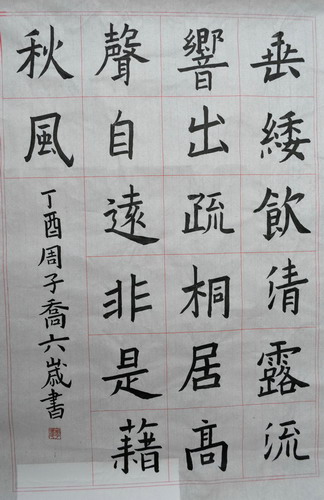 垂緌飲清露流
響出疏桐居高
聲自遠非是藉
秋風
丁酉周子喬六歲書